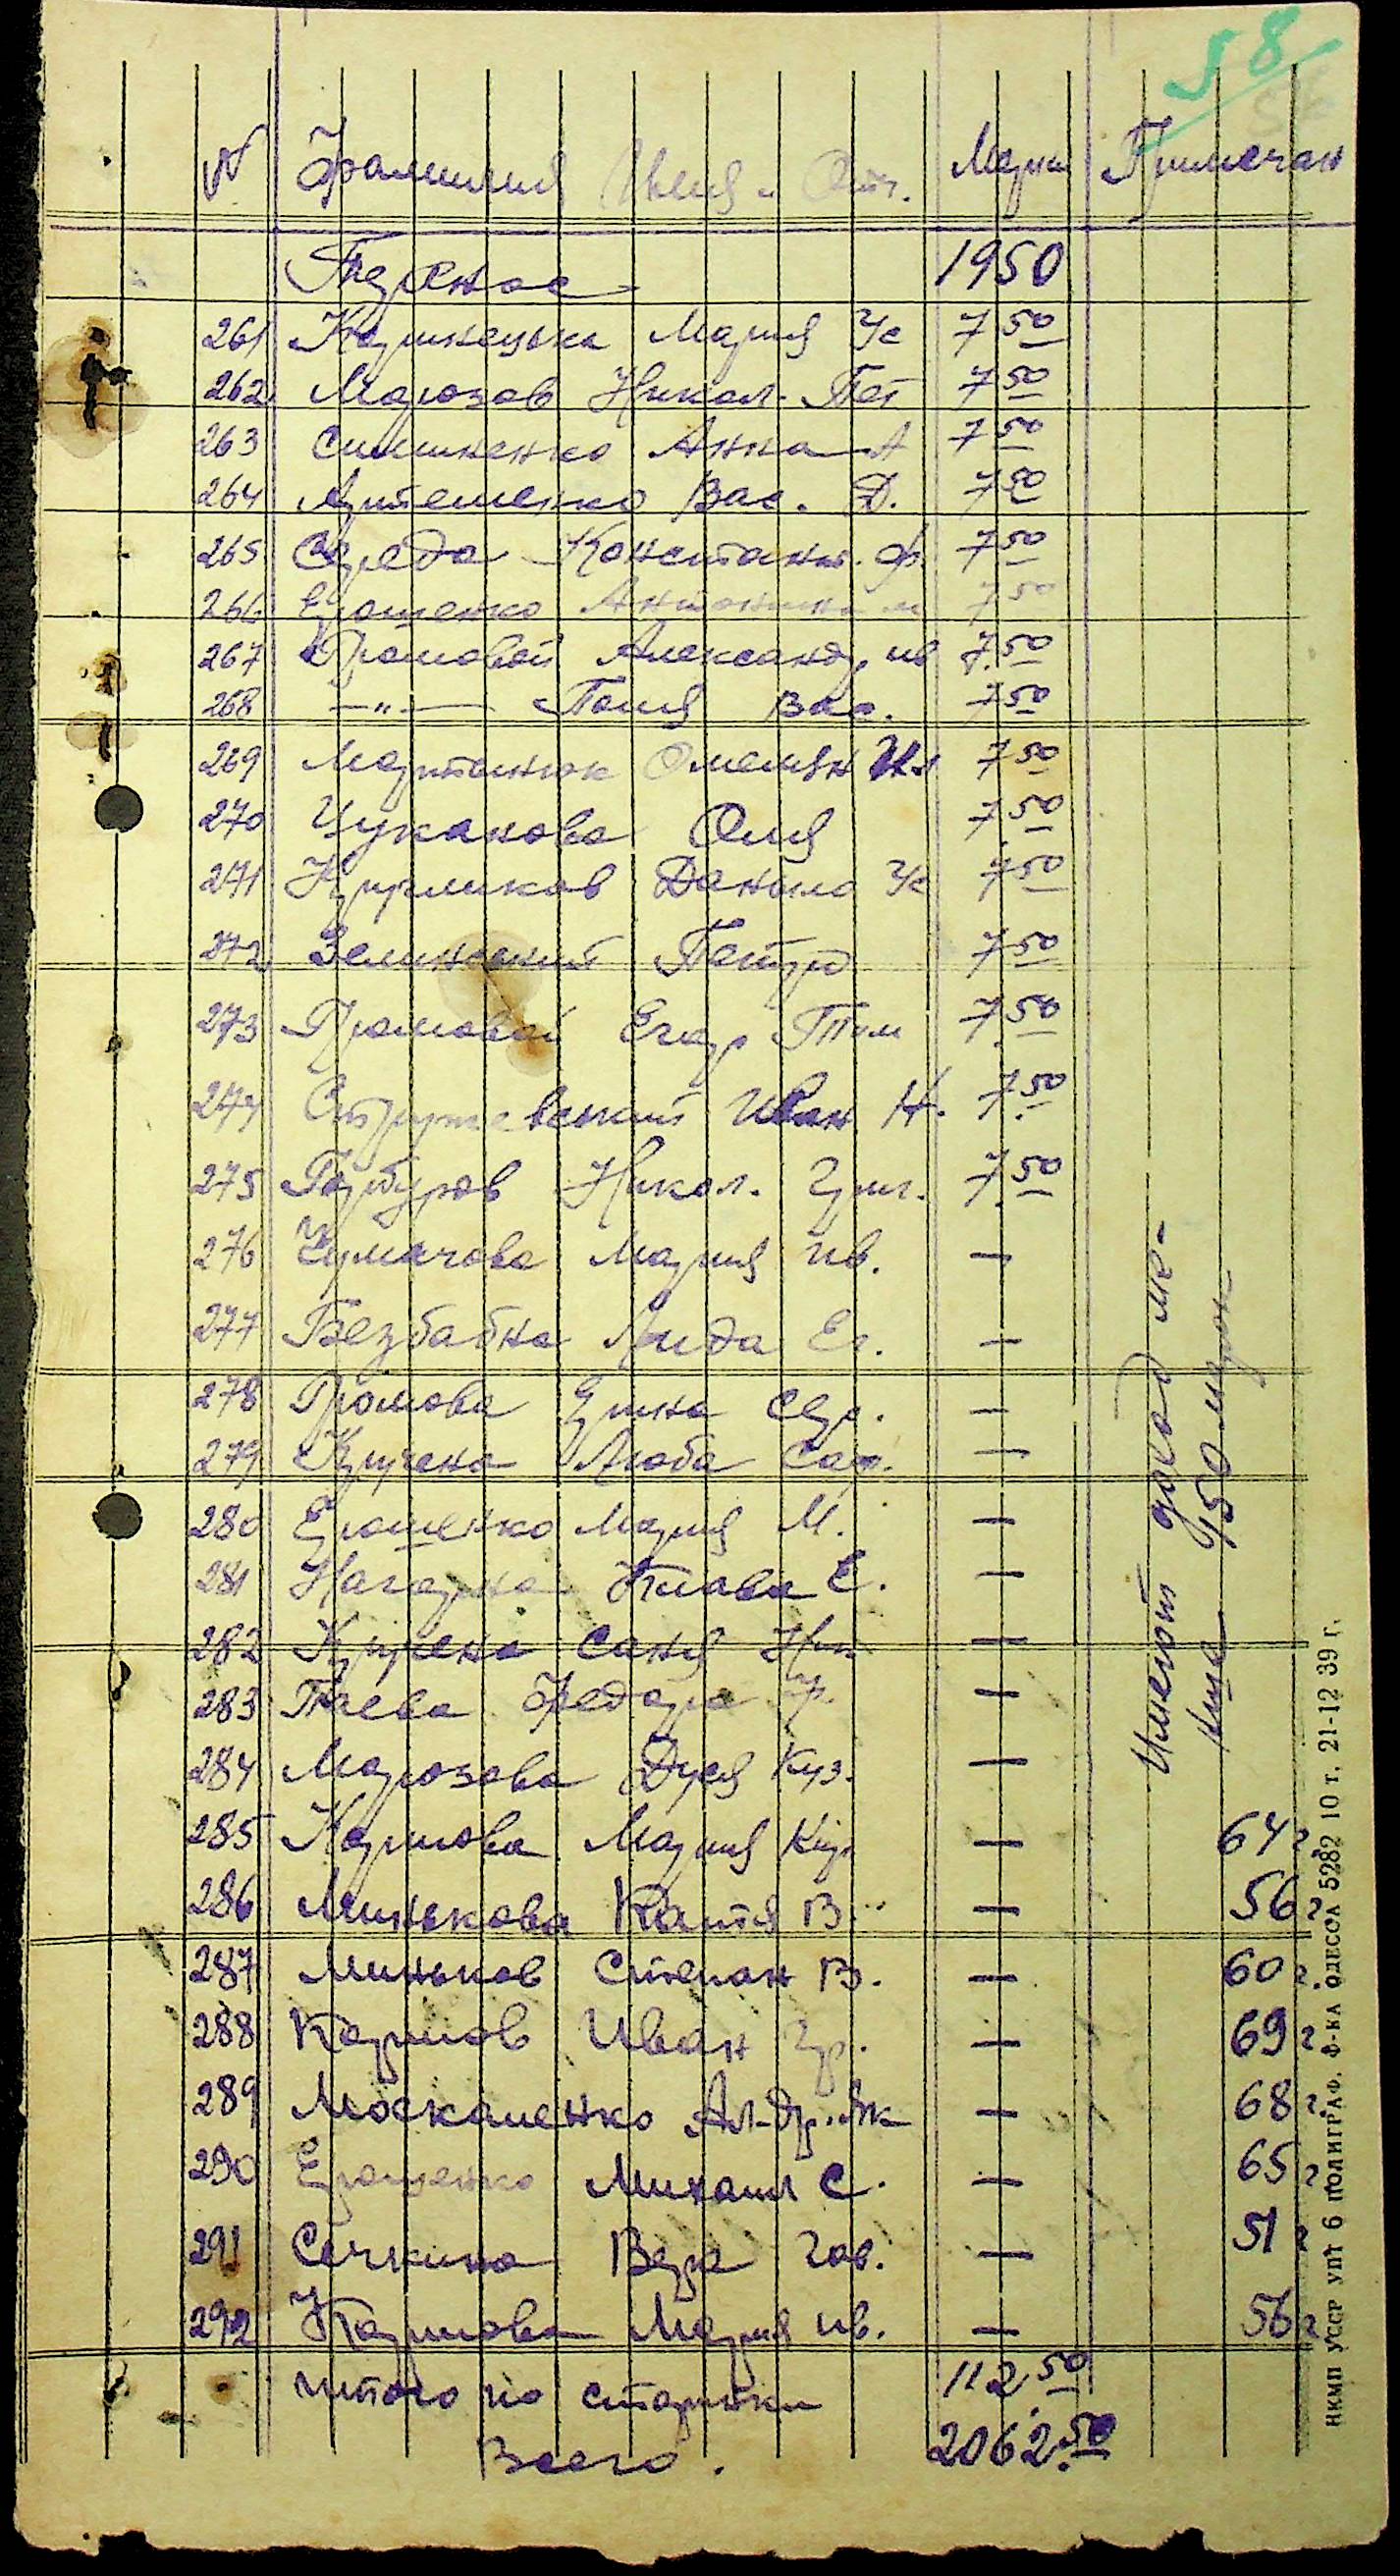 58
№ Фамилия Имя и Отч. Марки Примечан
Перенос 1950
261 Мария 7 50
262 Морозов Никол. Пет 7 50
263 Симиненко Анна А 7 50
264 Артеменко Вас. Д. 7 50
265 Середа Константин. Ф. 7 50
266 Ерошенко Антонина м 7 50
267 Громовой Александр ив 7 50
268 —"— Поля Вас. 7 50
269 Мартынюк Омелян 7 50
270 Цуканова Оля 7 50
271 Данило 7 50
272 Зелинский Петро 7 50
273 Громовой Егор Тим 7 50
274 Иван Н. 7 50
275 Горбуров Никол. Григ. 7 50
276 Чумачова Мария ив. —
277 Безбабна Лида Ег. —
278 Громова Ерина Сер. —
279 Курена Люба Сер. —
280 Ерошенко Мария М. —
281 Нагорна Клава Е. —
282 Курена Саня Ник —
283 Федора Гр. —
284 Морозова Дуся Куз. —
285 Карпова Мария Кир —
64 г
286 Минькова Катя В. —
56 г
287 Миньков Степан В. —
60 г.
288 Карпов Иван Гр. —
69 г
289 Москаленко Ал-др. Як —
68 г.
290 Ерошенко Михаил С. —
65 г
291 Сечкина Вера Гав. —
51 г
292 Карпова Мария ив. —
56 г
итого по сторінки 112.50
Всего. 2062.50
Имеют доход ме-
ньше 450 марок
НКМП УССР УПТ 6 ПОЛИГРАФ. Ф-КА ОДЕССА 5282 10 т. 21-12 39 г.